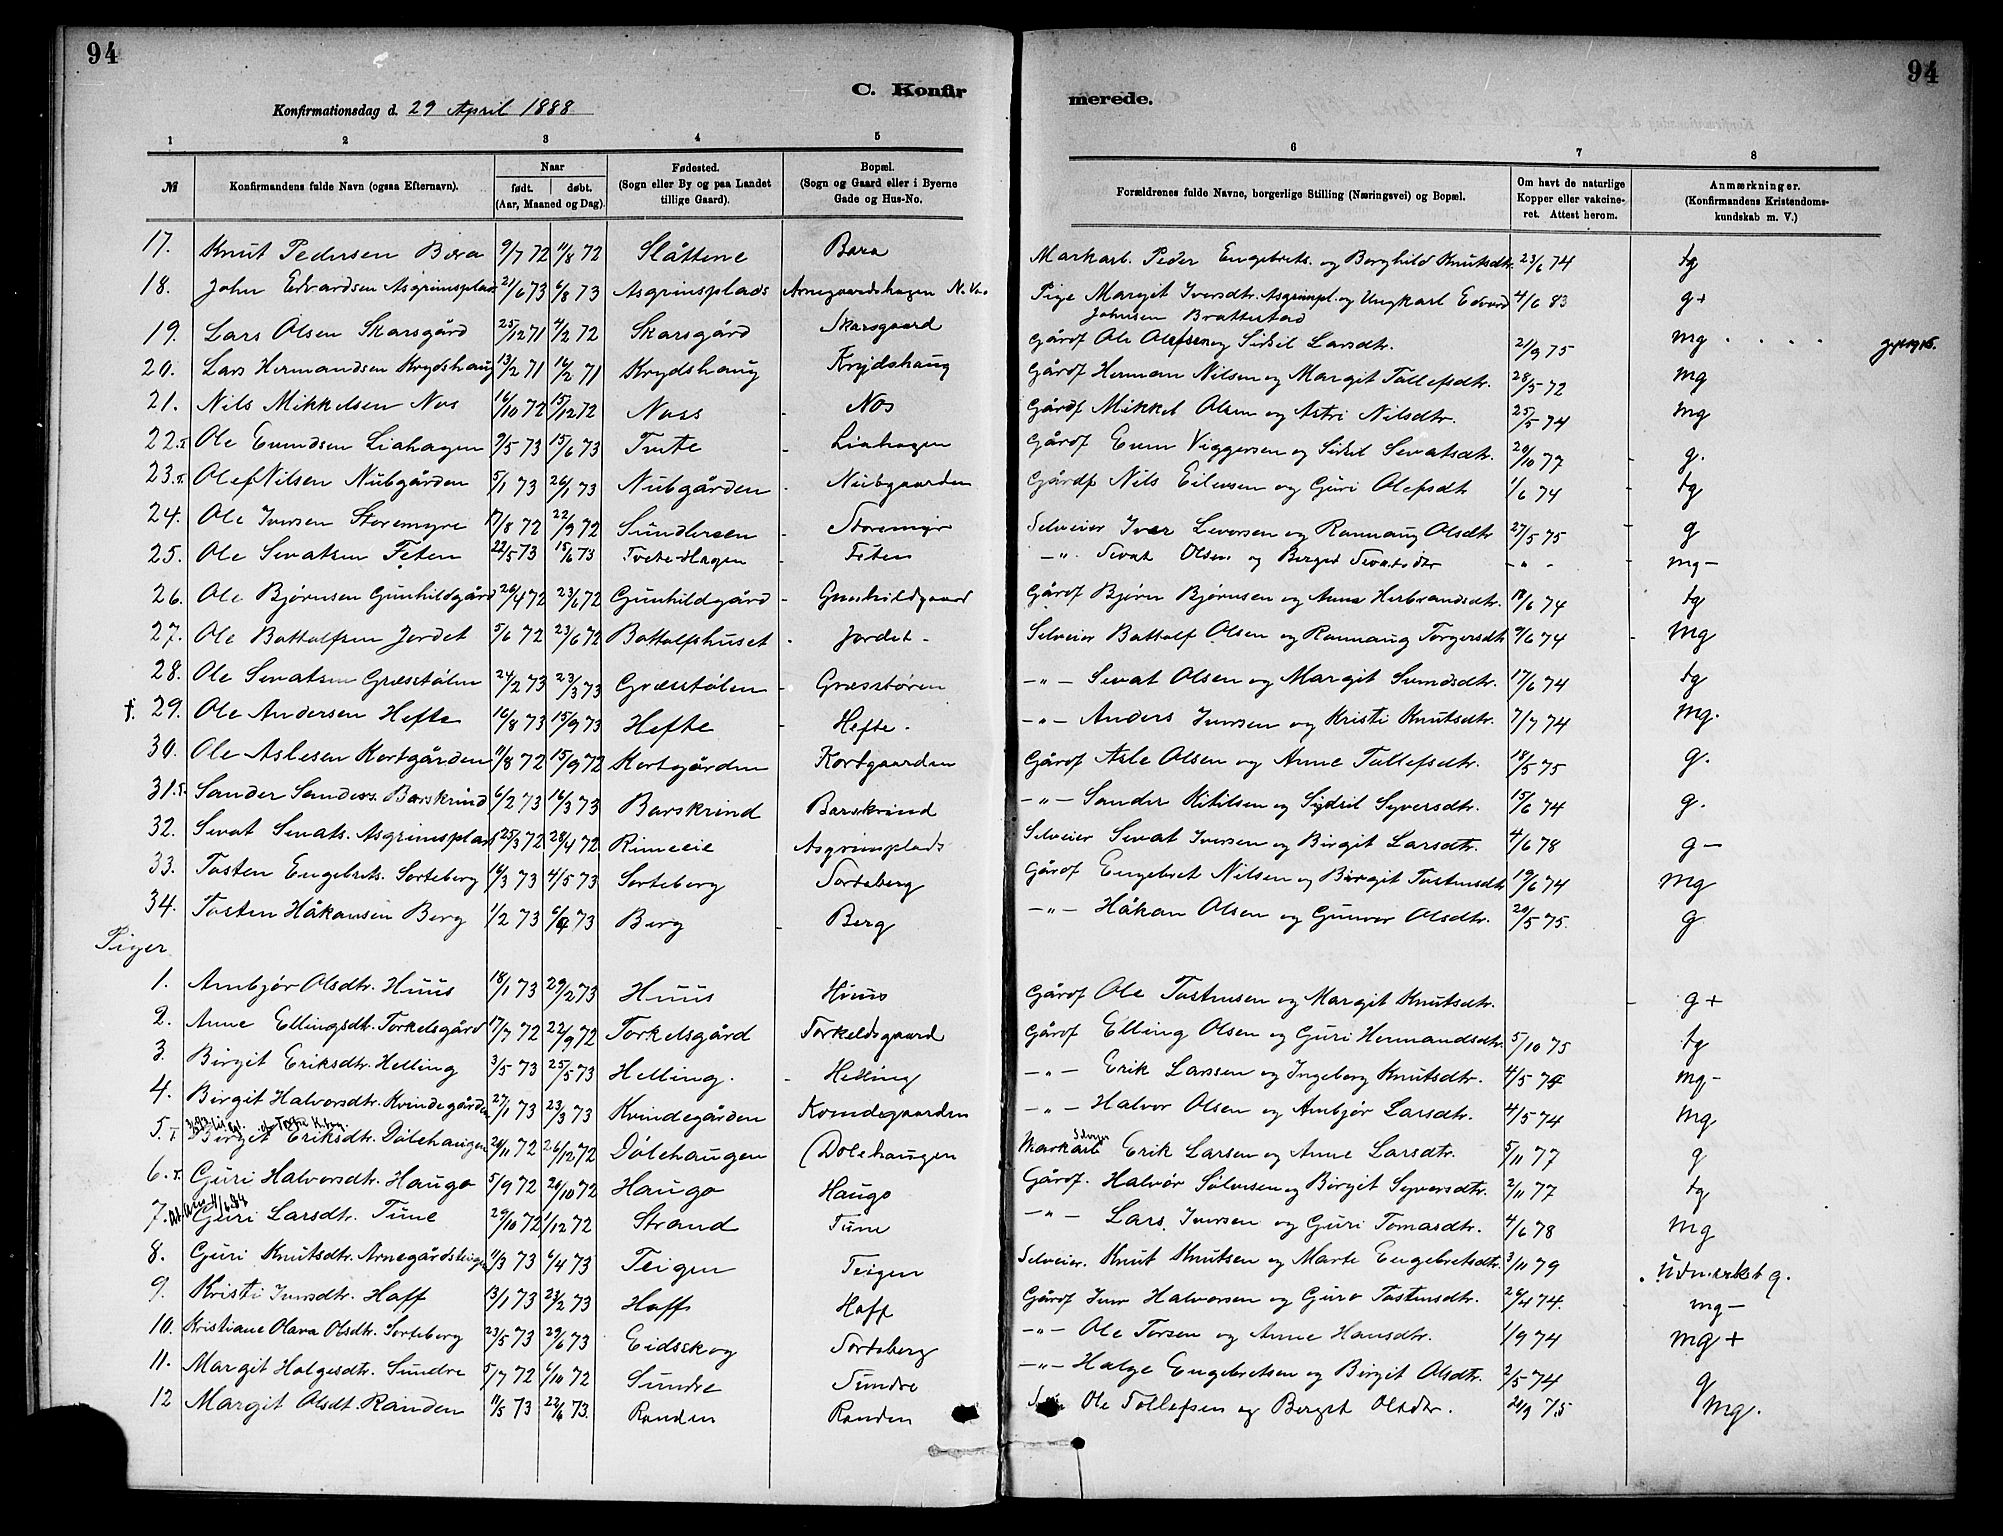 94
94
C. Konfir
merede.
Konfirmationsdag d. 29 April 1888
1 2 3 4 5 6 7 8
№ Konfirmandens fulde Navn (ogsaa Efternavn). Naar født. døbt. (Aar, Maaned og Dag). Fødested. (Sogn eller By og paa Landet tillige Gaard). Bopæl. (Sogn og Gaard eller i Byerne Gade og Hus-No. Forældrenes fulde Navne, borgerlige Stilling (Næringsvei) og Bopæl. Om havt de naturlige Kopper eller vakcineret. Attest herom. Anmærkninger. (Konfirmandens Kristendomskundskab m. V.)
17. Knut Pedersen Bera 9/7 72 11/8 72 Slåttene Markarb. Peder Engebrets. og Borghild Knutsdtr. 23/6 74 tg
18. John Edvardsen Asgrimsplads 21/6 73 6/8 73 Asgrimsplads Arnegaardshagen Pige Margit Iversdtr. Asgrimspl. og Ungkarl Edvard 4/6 83 g+
Johnsen Brattestad
19. Lars Olsen Skarsgård 25/12 71 4/2 72 Skarsgård Skarsgaard Gårdf Ole Olefsen og Sidsel Larsdtr. 21/9 75 mg
20. Lars Hermandsen Krydshaug 13/2 71 16/2 71 Krydshaug Krydshaug Gårdf Herman Nilsen og Margit Tollefsdtr. 28/5 72 mg
21. Nils Mikkelsen Nos 16/10 72 15/12 72 Noss Nos Gårdf Mikkel Olsen og Astri Nilsdtr. 25/5 74 mg
22. Ole Evendsen Liahagen 9/5 73 15/6 73 Tvete Liahagen Gårdf Even Viggersen og Sidsel Sevatsdtr. 20/10 77 g.
23. Olef Nilsen Nubgården 5/1 73 26/1 73 Nubgården Nubgaarden Gårdf Nils Eilevsen og Guri Olefsdtr 1/6 74 tg
24. Ole Iversen Storemyre 17/8 72 22/9 72 Sundlersen Storemyr Selveier Iver Leversen og Rannaug Olsdtr 27/5 75 g
25. Ole Sevatsen Feten 22/5 73 15/6 73 Tvete-Hagen Feten -"- Sevat Olsen og Berget Sevatsdtr -"- mg-
26. Ole Bjørnsen Gunhildgård 26/4 72 23/6 72 Gunhildgård Gunhildgaard Gårdf Bjørn Bjørnsen og Anne Herbrandsdtr. 18/6 74 tg
27. Ole Bottolfsen Jordet 5/6 72 23/6 72 Bottolfshuset Jordet Selveier Bottolf Olsen og Rannaug Torgersdtr 9/6 74 mg
28. Ole Sevatsen Græsstølen 24/2 73 23/3 73 Græsstølen Græsstøren -"- Sevat Olsen og Margit Svendsdtr. 17/6 74 tg
29. Ole Andersen Hefte 16/8 73 15/9 73 Hefte Hefte. -"- Anders Iversen og Kristi Knutsdtr. 7/7 74 mg.
30. Ole Aslesen Kortgården 11/8 72 15/9 72 Kortgården Kortgaarden Gårdf Asle Olsen og Anne Tollefsdtr. 18/5 75 g.
31. Sander Sanders. Barskrind 6/2 73 16/3 73 Barskrind Barskrind -"- Sander Kitilsen og Sidsel Syversdtr. 15/6 74 g.
32. Sevat Sevats. Asgrimsplads 25/3 72 28/4 72 Rimeeie Asgrimsplads Selveier Sevat Iversen og Birgit Larsdtr. 4/6 78 g-
33. Tosten Engebrets. Sorteberg 16/3 73 4/5 73 Sorteberg Sorteberg Gårdf Engebret Nilsen og Birgit Tostensdtr 19/6 74 mg
34. Tosten Håkansen Berg 1/2 73 6/4 73 Berg Berg -"- Håkan Olsen og Gunvor Olsdtr. 20/5 75. g
Piger
1. Ambjør Olsdtr. Huus 18/1 73 Huus Huus Gårdf Ole Tostensen og Margit Knutsdtr. g+
2. Anne Ellingsdtr. Torkelsgård 17/7 72 22/9 72 Torkelsgård Torkeldsgaard Gårdf Elling Olsen og Guri Hermandsdtr. 5/10 75 tg
3. Birgit Eriksdtr. Helling 3/5 73 25/5 73 Helling. Helling -"- Erik Larssen og Ingeborg Knutsdtr. 4/5 74 mg-
4. Birgit Halvorsdtr. Kvindegården 27/1 73 23/3 73 Kvindegården Kvindegaarden -"- Halvor Olsen og Ambjør Larsdtr. 4/5 74 mg
5. Birget Eriksdtr. Dølehaugen 20/11 72 26/12 72 Dølehaugen Dølehaugen Markarb Erik Larsen og Anne Larsdtr. 5/11 77 g
6. Guri Halvorsdtr. Haugo 5/9 72 20/10 72 Haugo Haugo Gårdf. Halvor Sølvesen og Birgit Syversdtr. 2/11 77 tg
7. Guri Larsdtr. Tune 29/10 72 1/12 72 Strand Tune -"- Lars Iversen og Guri Tomasdtr. 4/6 78 mg
8. Guri Knutsdtr. Arnegårdsteigen 11/3 73 6/4 73 Teigen Teigen Selveier. Knut Knutsen og Marte Engebretsdtr. 3/11 79 Udmerket g.
9. Kristi Iversdtr. Hoff 13/1 73 23/2 73 Hoff Hoff Gårdf Iver Halvorsen og Guro Tostensdtr. 26/4 74. mg-
10. Kristiane Olava Olsdtr. Sorteberg 23/5 73 29/6 73 Eidsskog Sorteberg -"- Ole Torsen og Anne Hansdtr. 1/9 74 mg+
11. Margit Holgesdtr. Sundre 5/7 72 6/10 72 Sundre Sundre -"- Holge Engebretsen og Birgit Olsdtr. 2/5 74 g
12 Margit Olsdt. Randen 11/5 73 22/6 73. Randen Randen Ole Tollefsen og Berget Olsdtr. 20/9 75 mg.